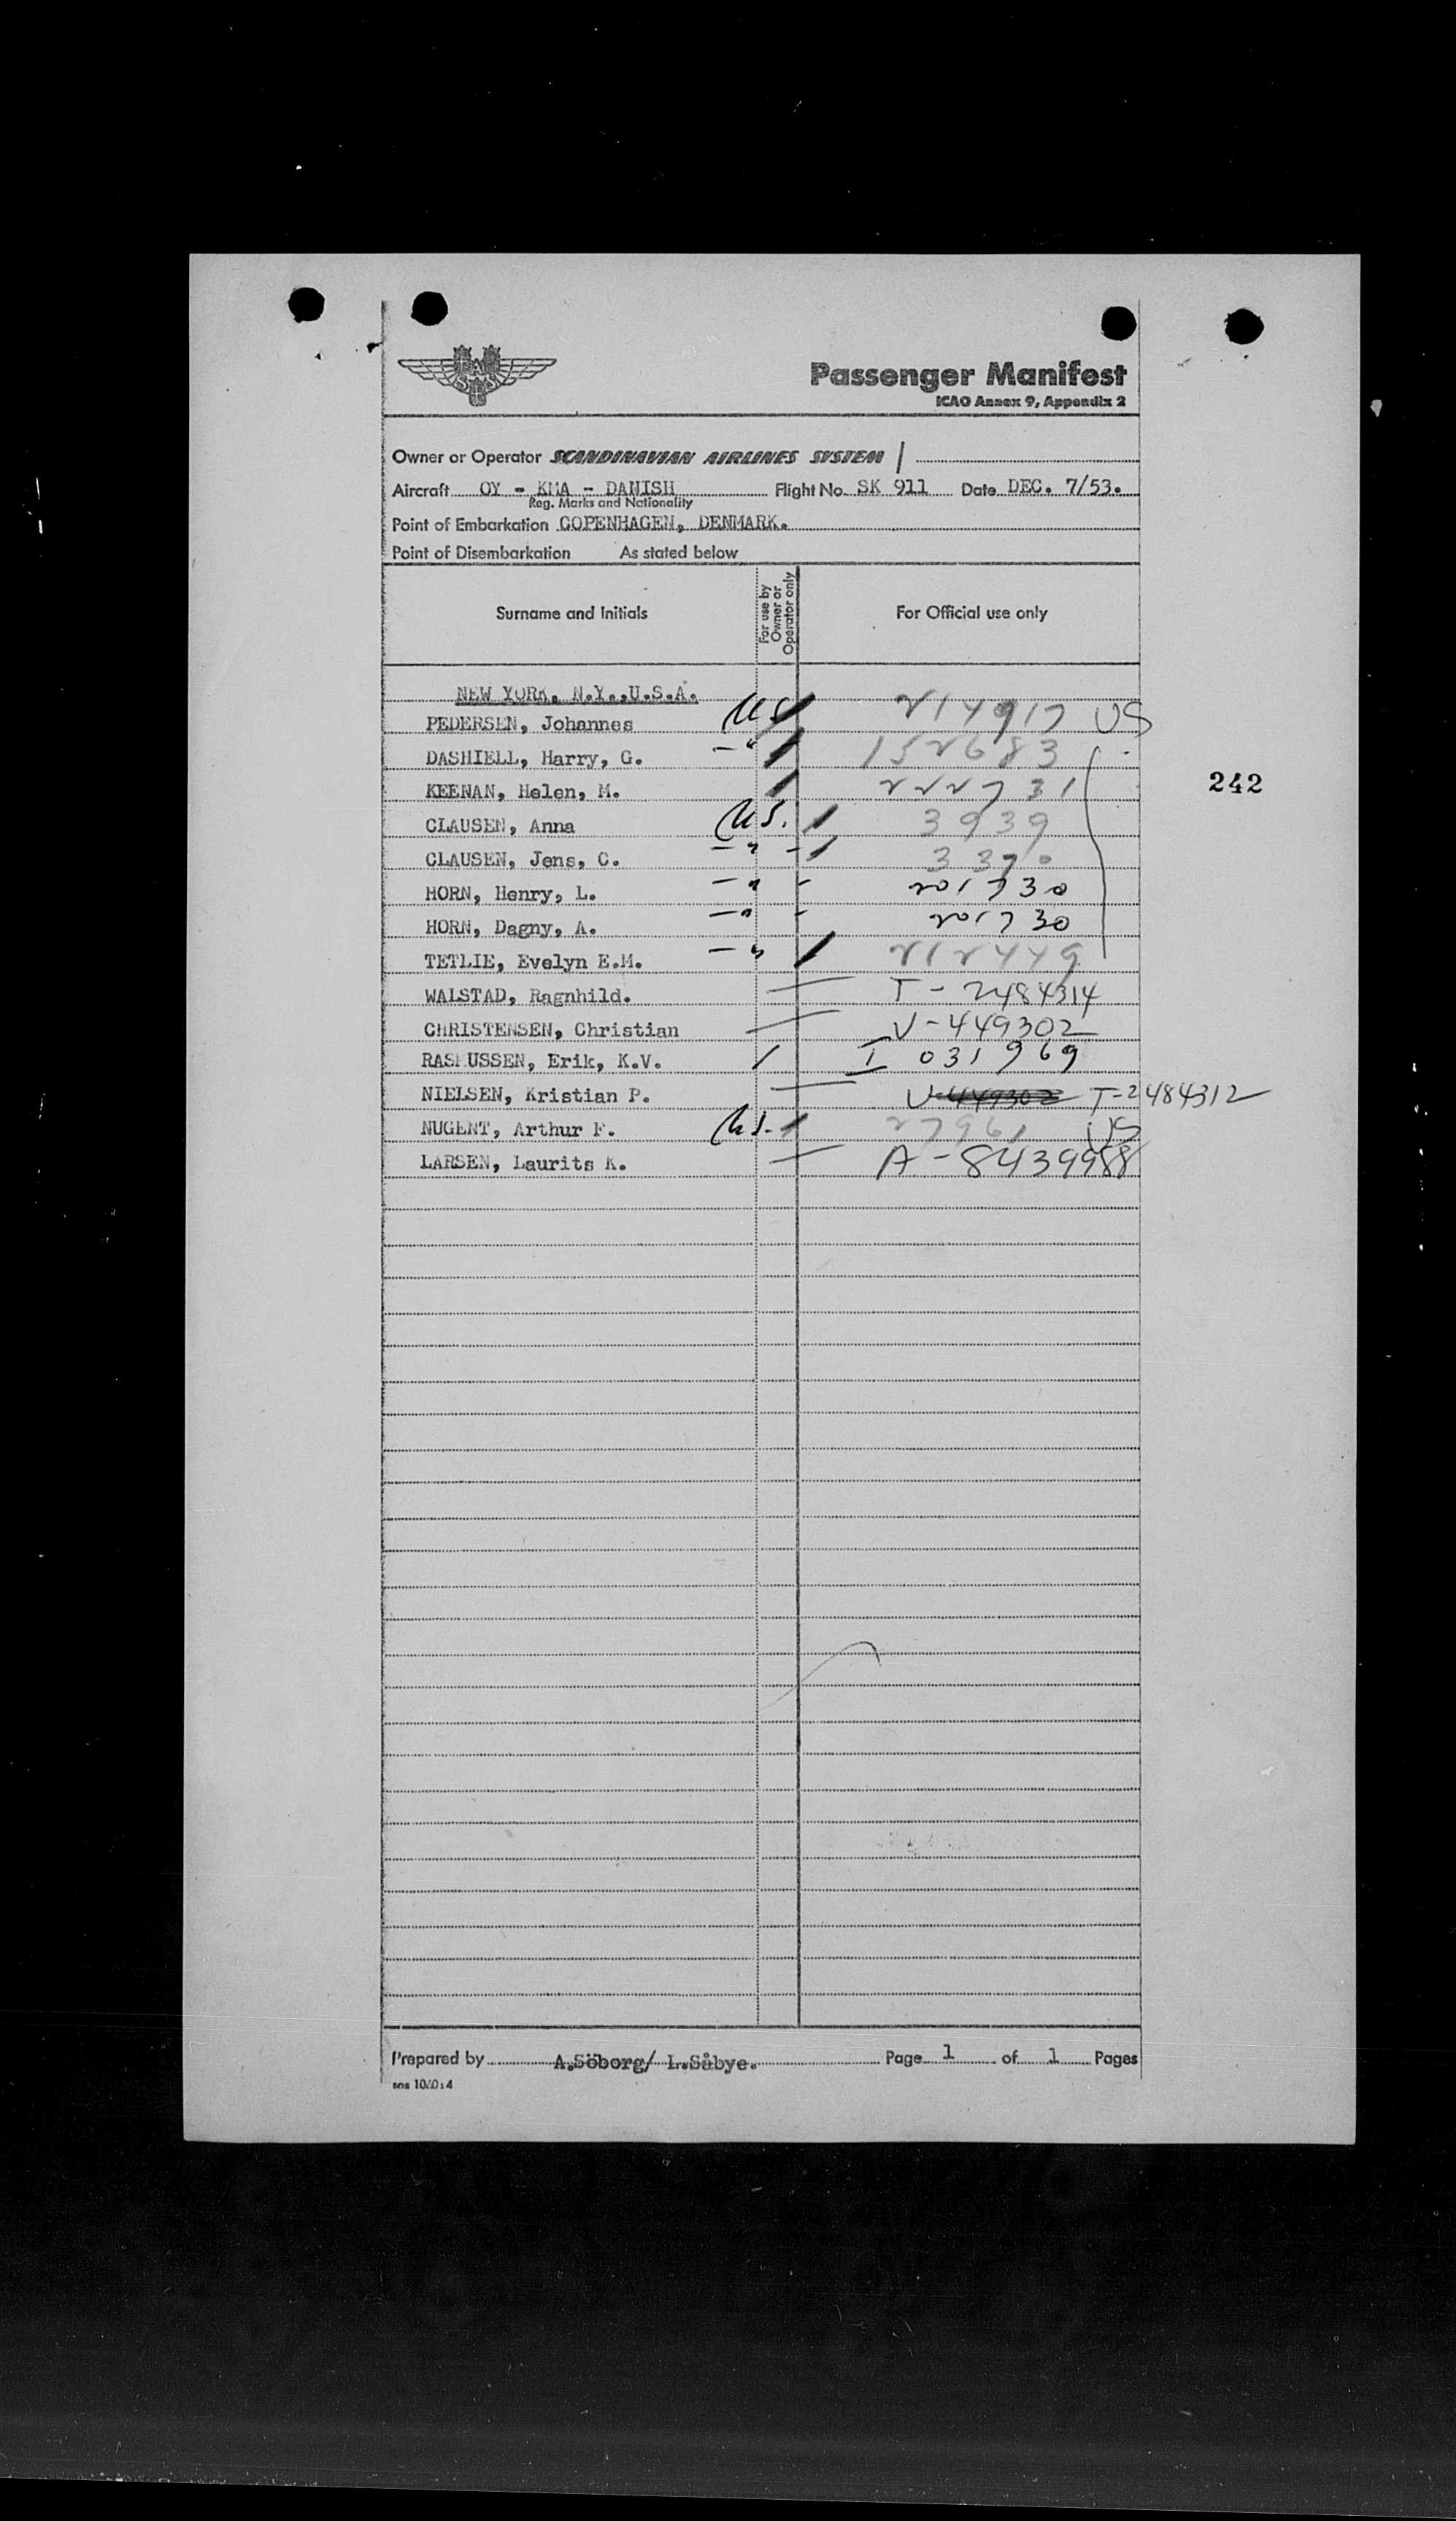 SAS
Passenger Manifest
ICAO Annex 9, Appendix 2
Owner or Operator SCANDINAVIAN AIRLINES SYSTEM
Aircraft OY - KMA - DANISH Flight No. SK 911 Date DEC. 7/53.
Reg. Marks and Nationality
Point of Embarkation COPENHAGEN, DENMARK.
Point of Disembarkation As stated below
Surname and Initials For use by Owner or Operator only For Official use only
NEW YORK, N.Y.,U.S.A.
PEDERSEN, Johannes US 214917 US
DASHIELL, Harry, G. - " 152683
KEENAN, Helen, M. 222731
242
CLAUSEN, Anna US. 3939
CLAUSEN, Jens, C. - " - 3370
HORN, Henry, L. - " - 201730
HORN, Dagny, A. - " - 201730
TETLIE, Evelyn E.M. - " 212449
WALSTAD, Ragnhild. T - 2484314
CHRISTENSEN, Christian V-449302
RASMUSSEN, Erik, K.V. I 031969
NIELSEN, Kristian P. V-449302 T-2484312
NUGENT, Arthur F. US. 27961 US
LARSEN, Laurits K. A-8439988
Prepared by A.Söborg/ L.Såbye. Page 1 of 1 Pages